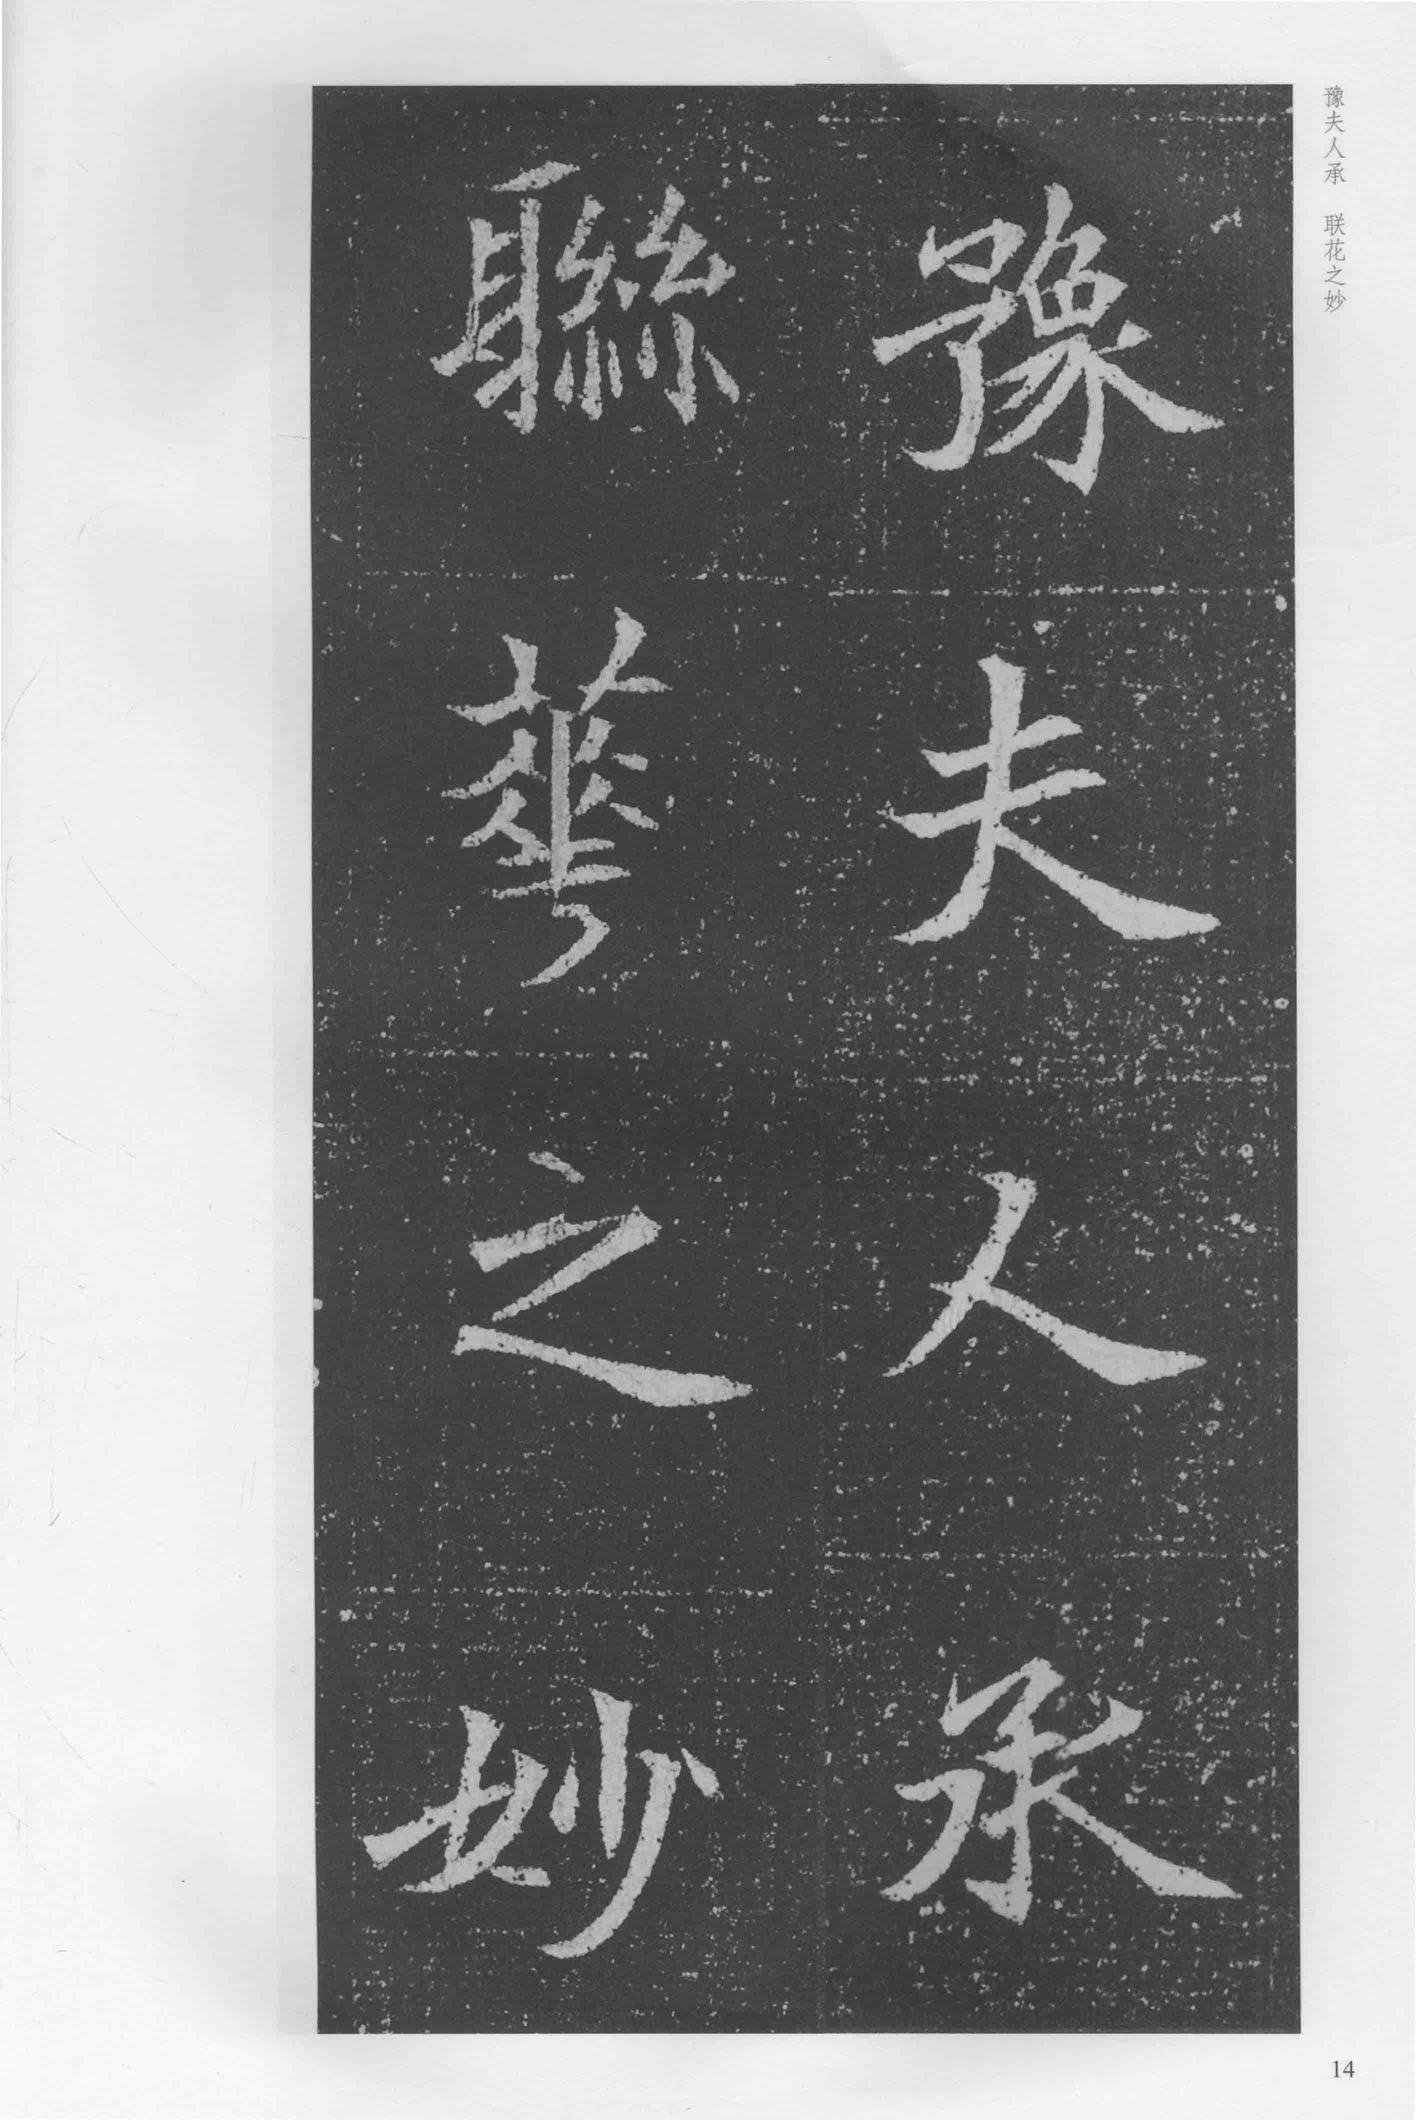 豫夫人承
聯華之妙
豫夫人承　联花之妙
14